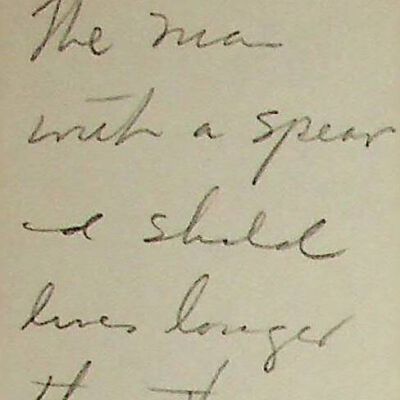 The man
with a spear
and shield
lives longer
than the